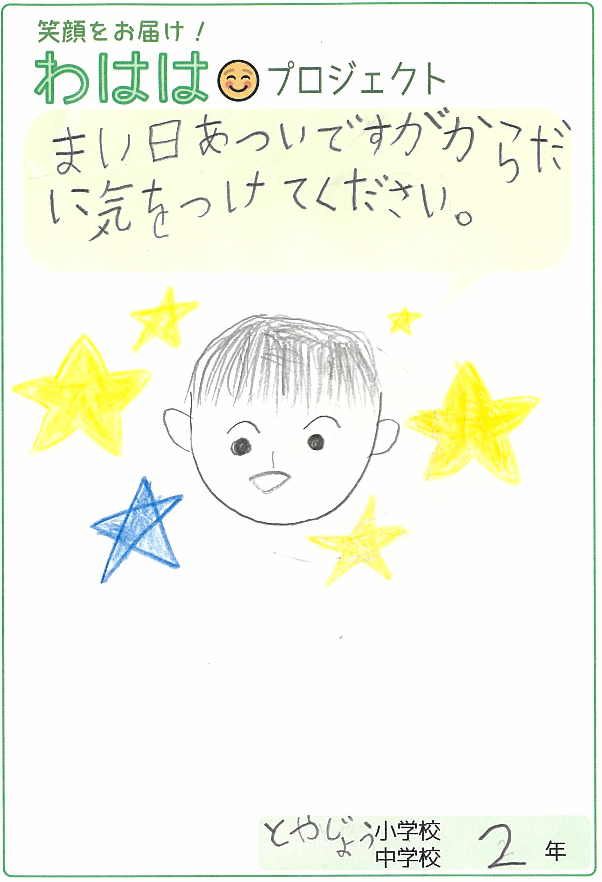 笑顔をお届け！
わははプロジェクト
まい日あついですがからだ
に気をつけてください。
とやじょう小学校
中学校
2年